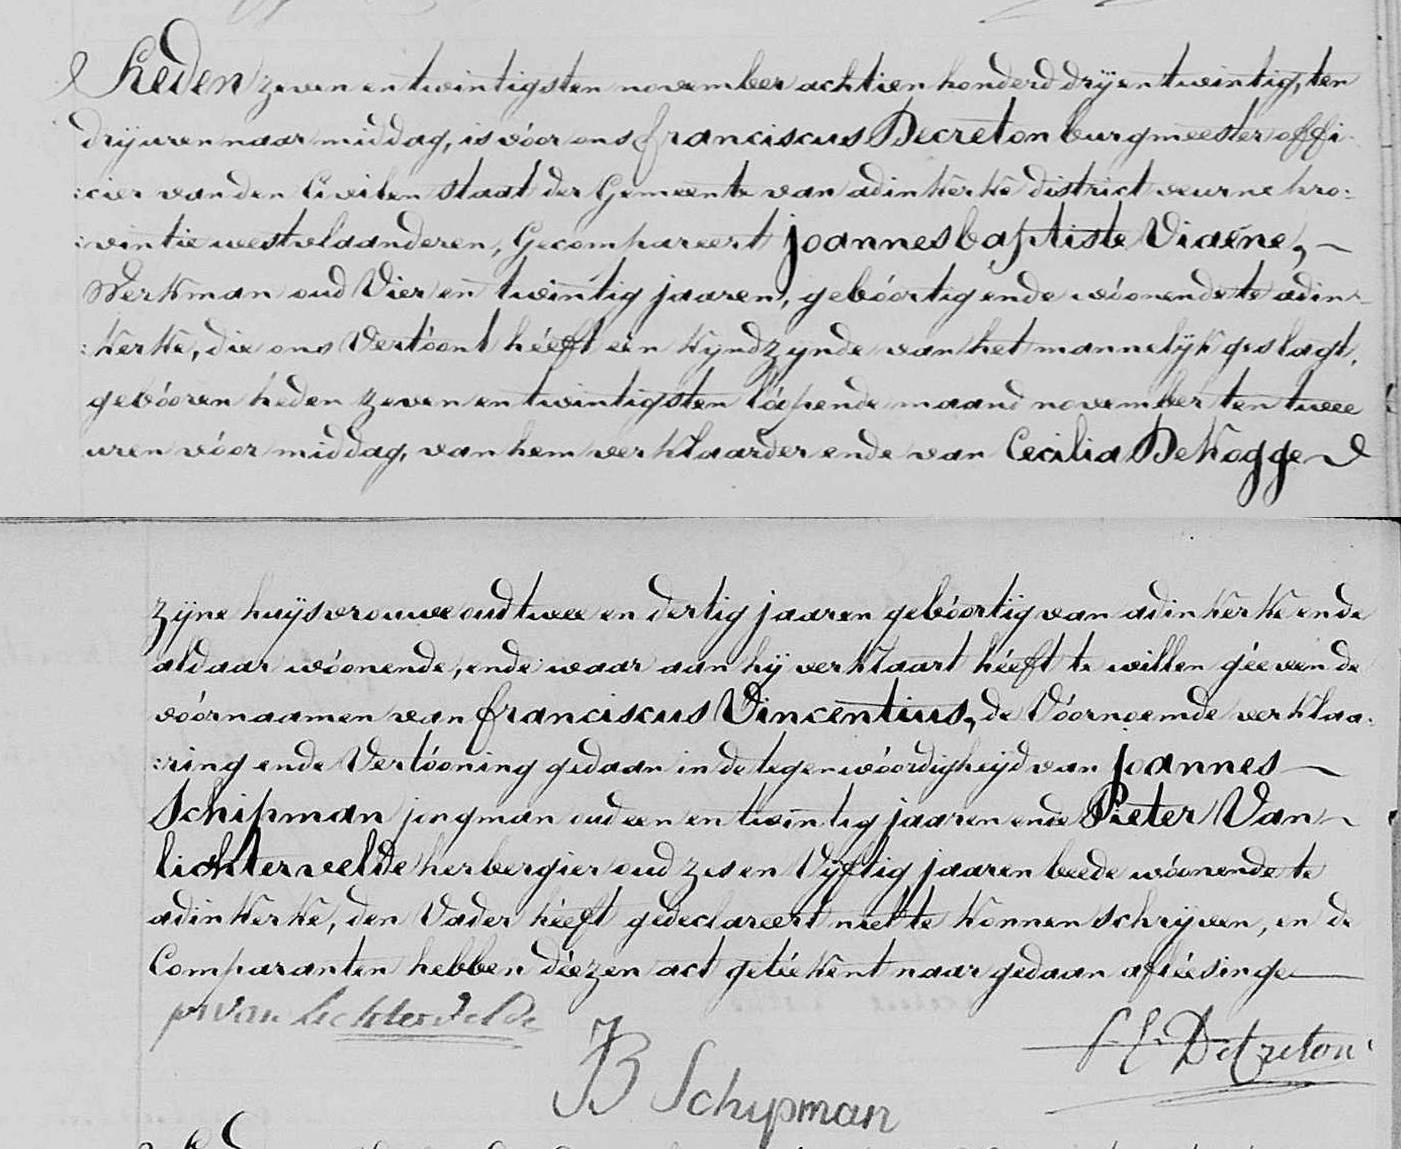 Heden zeven en twintigsten november achtien honderd drij en twintig, ten
drij uren naar middag, is vóor ons franciscus Decreton burgmeester offi
:cier van den Civilen staat der Gemeente van adinkerke district veurne pro:
:vintie westvlaanderen, Gecompareert joannes baptiste Viaéne, ~
Werkman oud Vier en twintig jaaren, gebóortig ende wóonende te adin-
:kerke, die ons Vertóont hééft eén kynd zynde van het mannelyk geslagt,
gebóoren heden zeven en twintigsten lópende maand november ten twee
uren vóor middag, van hem verklaarder ende van Cecilia De Kogge
zyne huysvrouwe oud twee en dertig jaaren gebóortig van adinkerke ende
aldaar wóonende, ende waar aan hij verklaart hééft te willen géeven de
vóornaamen van franciscus Vincentius, de Vóornoemde verklaa:
:ring ende Vertóoning gedaan in de tegenwóordigheijd van joannes ~
Schipman jongman oud een en twintig jaaren ende Pieter Van ~
lichtervelde herbergier oud zes en Vyftig jaaren beede wóonende te
adinkerke, den Vader hééft gedeclareert niet te konnen schryven, en de
Comparanten hebben diézen act getéekent naar gedaan aflésinge
p van Lichtervelde
F. E. Decreton
JB Schypman